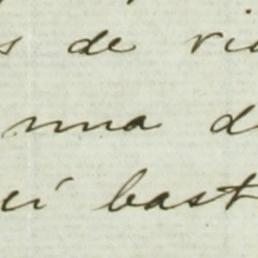 s de vid
nna d
ei bast